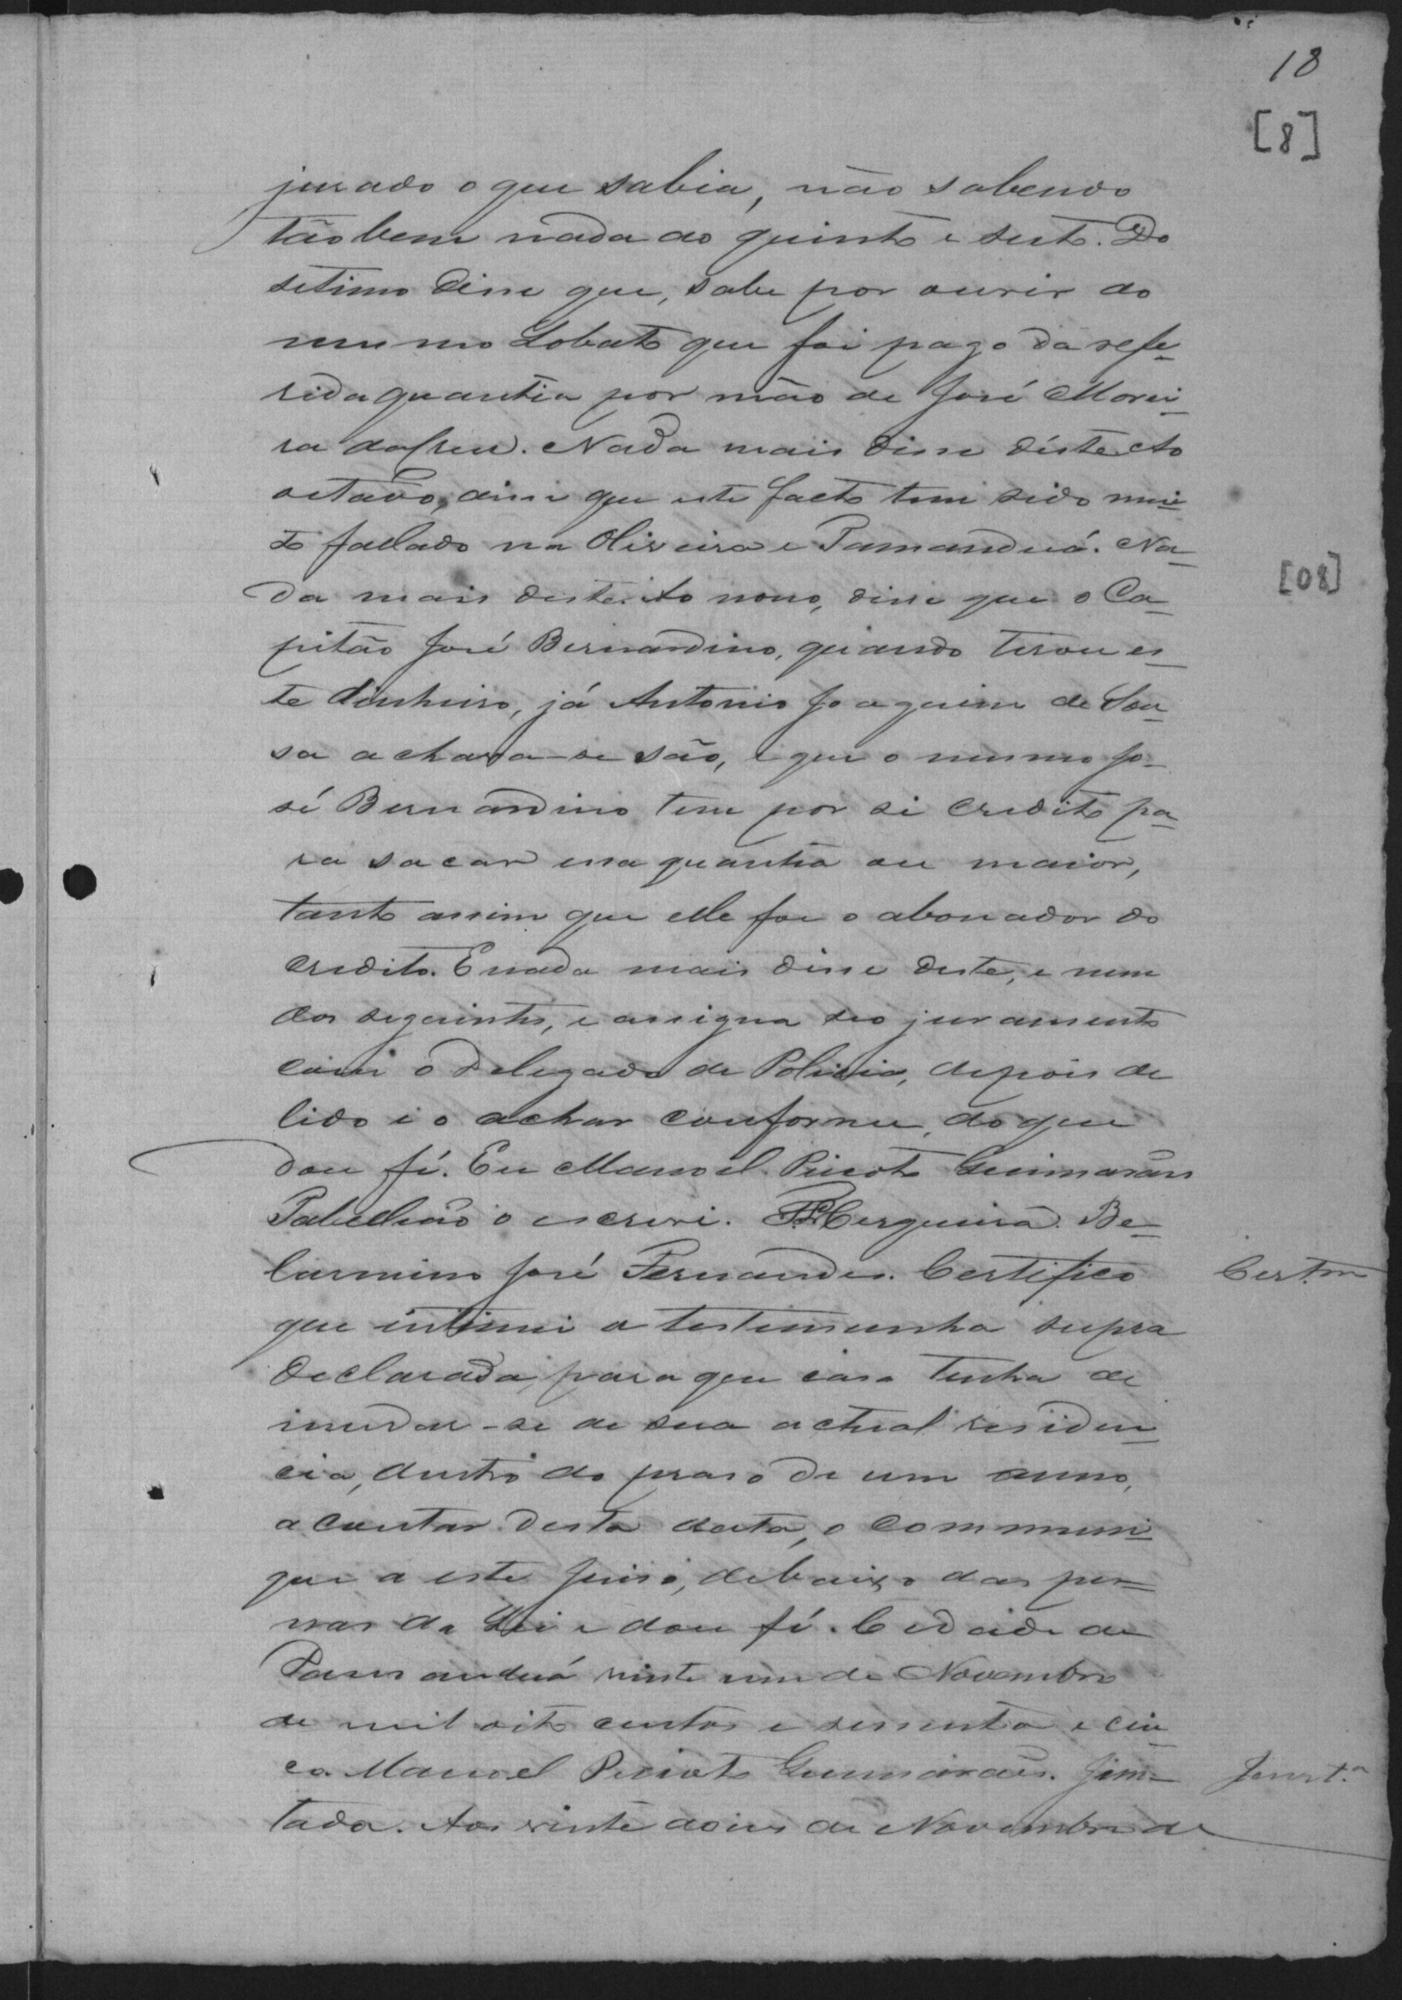 18
[8]
jurado o que sabia, não sabendo
tãobem nada ao quinto e sesto. Do
setimo disse que, sabe por ouvir ao
mesmo Lobato que foi pago da refe-
rida quantia por mão de José Morei-
ra da Cru. Nada mais disse díste. Ao
oitavo, disse que este facto tem sido mui-
to fallado na Oliveira e Tamanduá. Na-
[08]
da mais deste. Ao nono, disse que o Ca-
pitão José Bernardino, quando tirou es-
te dinheiro, já Antonio Joaquim de Sou-
sa achava-se são, e que o mesmo Jo-
sé Bernardino tem por si credito pa-
ra sacar essa quantia ou maior,
tanto assim que elle foi o abonador do
credito. E nada mais disse deste, e nem
dos seguintes, e assigna seo juramento
com o Delegado de Policia, depois de
lido e o achar conforme, do que
dou fé. Eu Manoel Pinto Guimarães
Tabellião o escrevi. Cerqueira. Be-
larmino José Fernandes. Certifico
Cert.am
que intimei a testemunha supra
declarada, para que caso tenha de
mudar-se de sua actual residen-
cia, dentro do praso de um anno,
a contar desta data, o communi-
que a este Juiso, debaixo das pe-
nas da Lei e dou fé. Cidade de
Tamanduá vinte um de Novembro
de mil oito centos e sessenta e cin-
co. Manoel Pinto Guimarães. Jun-
Junt.a
tada. Aos vinte dois de Novembro de